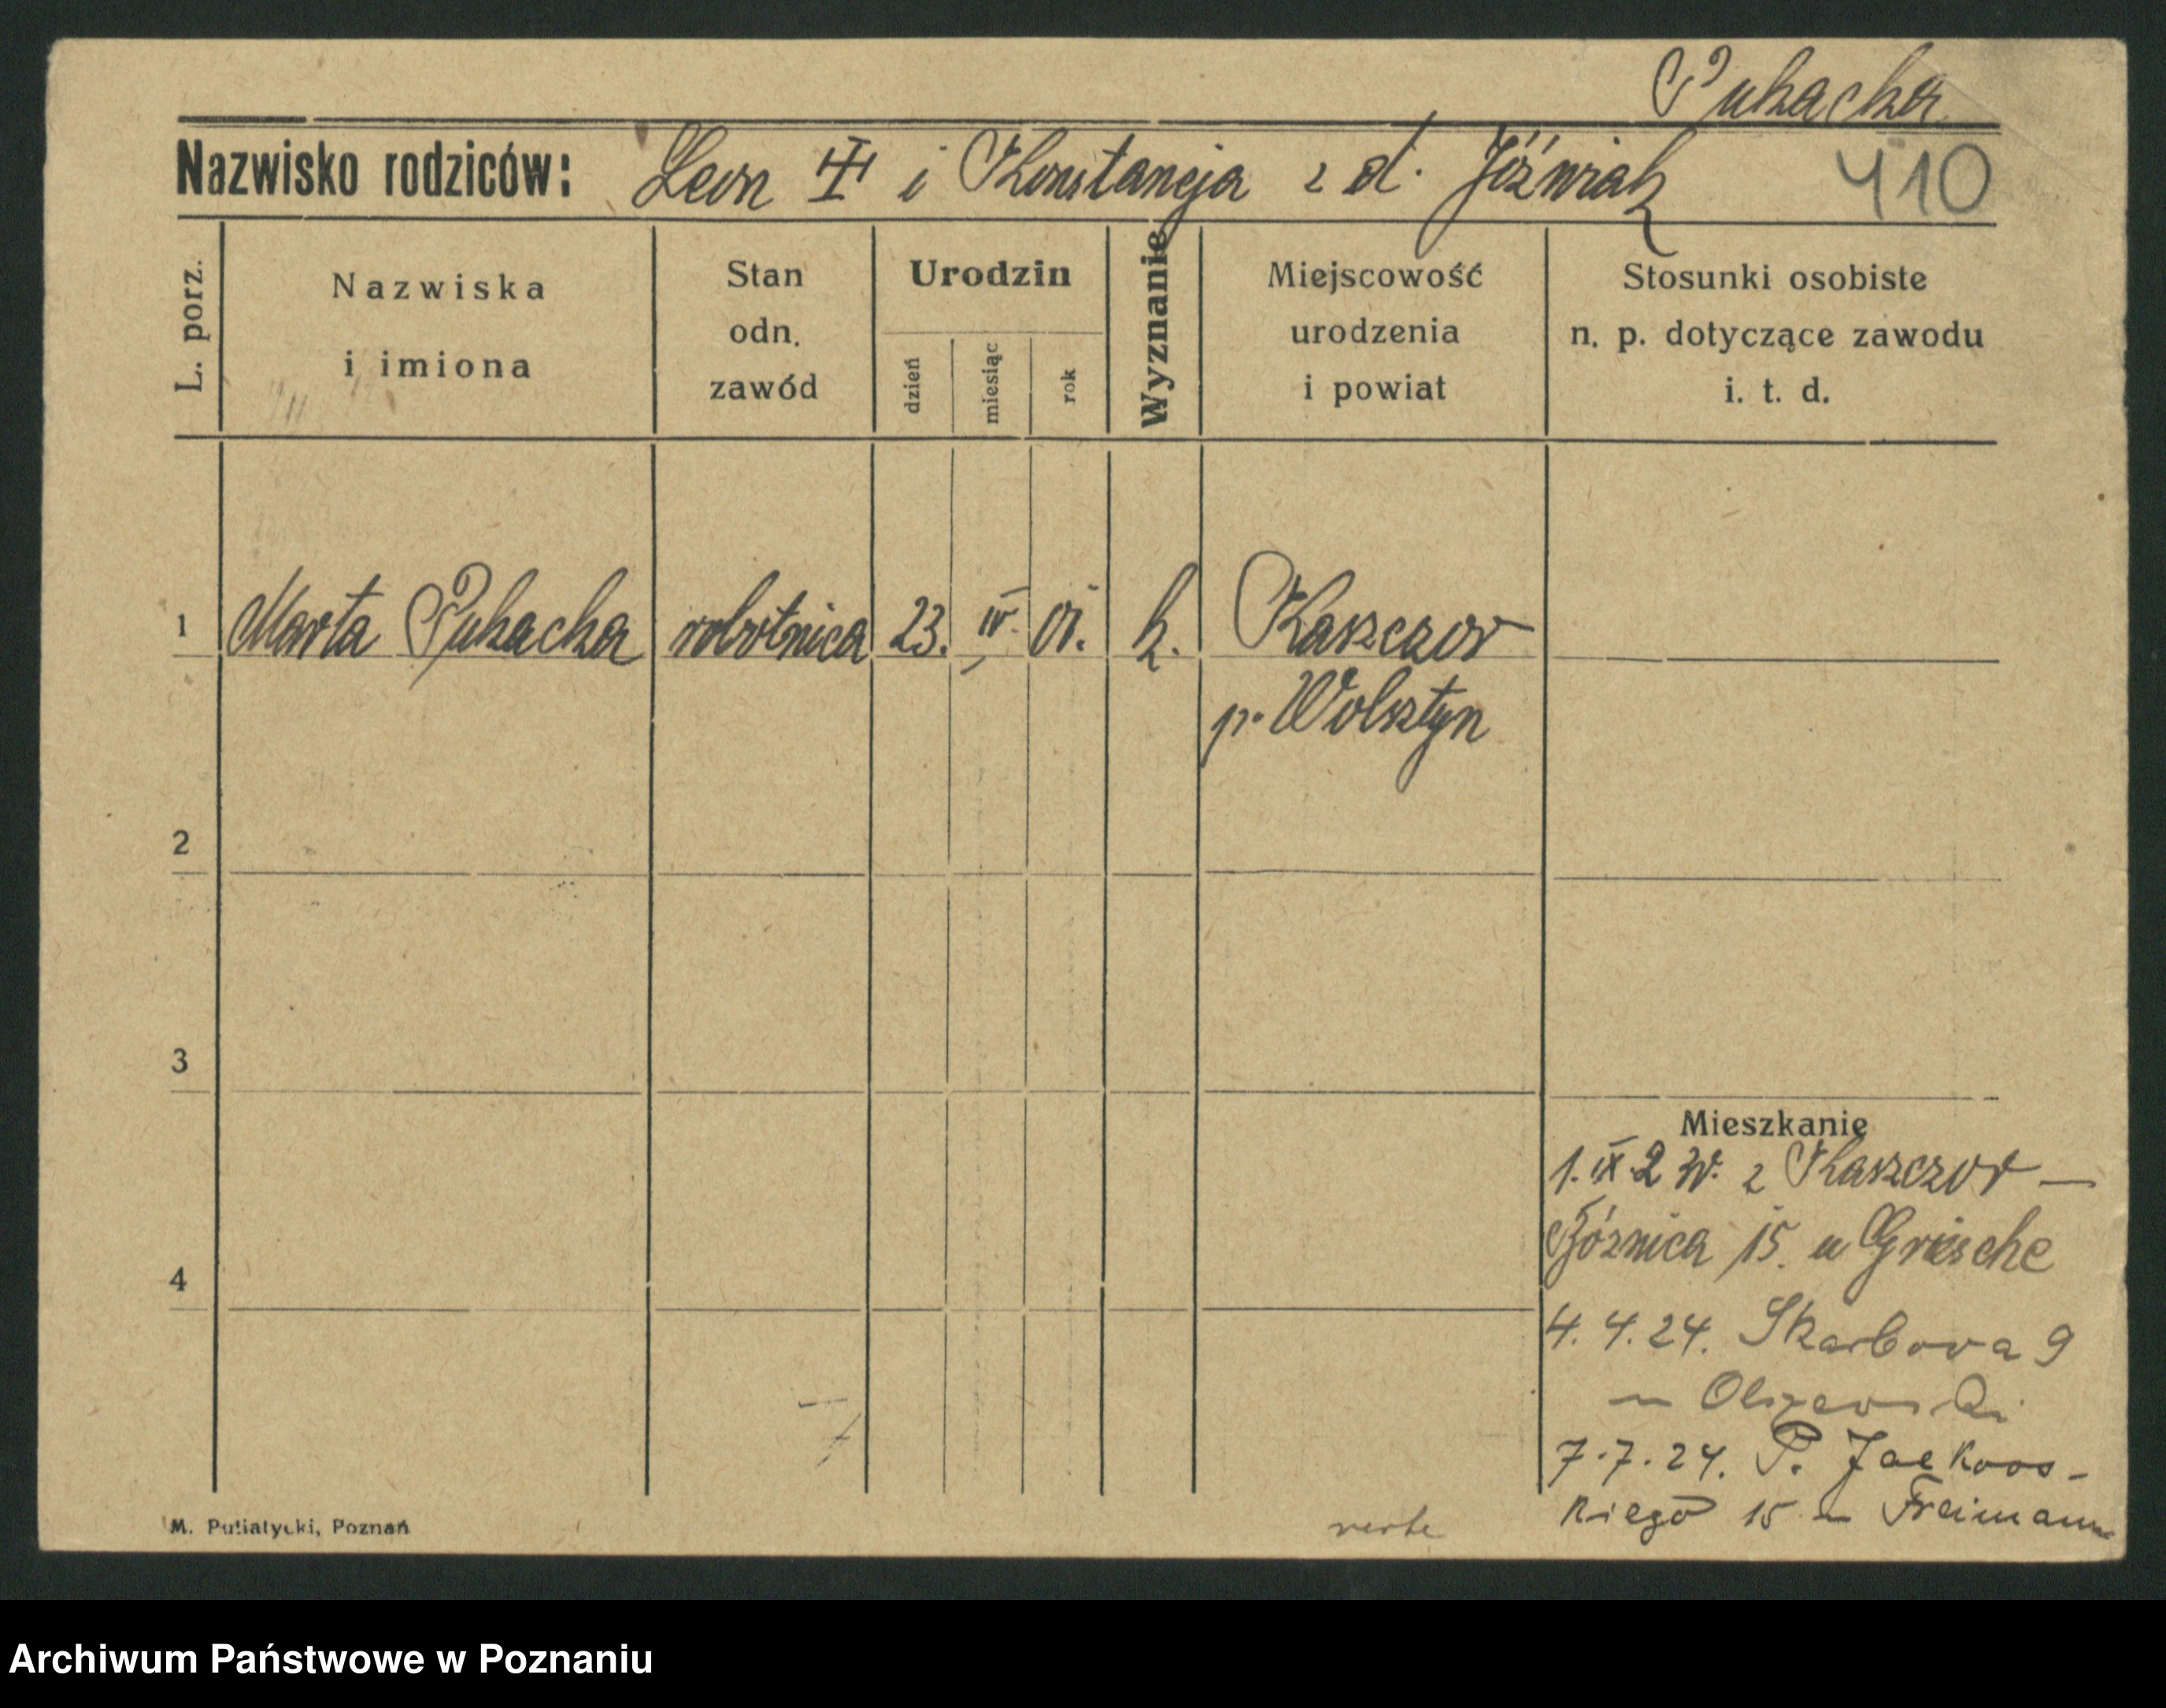 Pukacka
Nazwisko rodziców: Leon ⚔ i Konstancja z d. Jóźwiak 410
L. porz.
Nazwiska
i imiona
Stan
odn.
zawód
Urodzin
dzień
miesiąc
rok
Wyznanie
Miejscowość
urodzenia
i powiat
Stosunki osobiste
n. p. dotyczące zawodu
i. t. d.
1 Marta Pukacka robotnica 23. IV. 01. k. Kaszczor
p. Wolsztyn
2
3
Mieszkanie
1. IX. 2 z Kaszczor —
15. u Griesche
4
4. 4. 24. Skarbowa 9
Olszewski
7. 7. 24. P. Jackows-
kiego 15 Freimann
verte
M. Putiatycki, Poznań
Archiwum Państwowe w Poznaniu